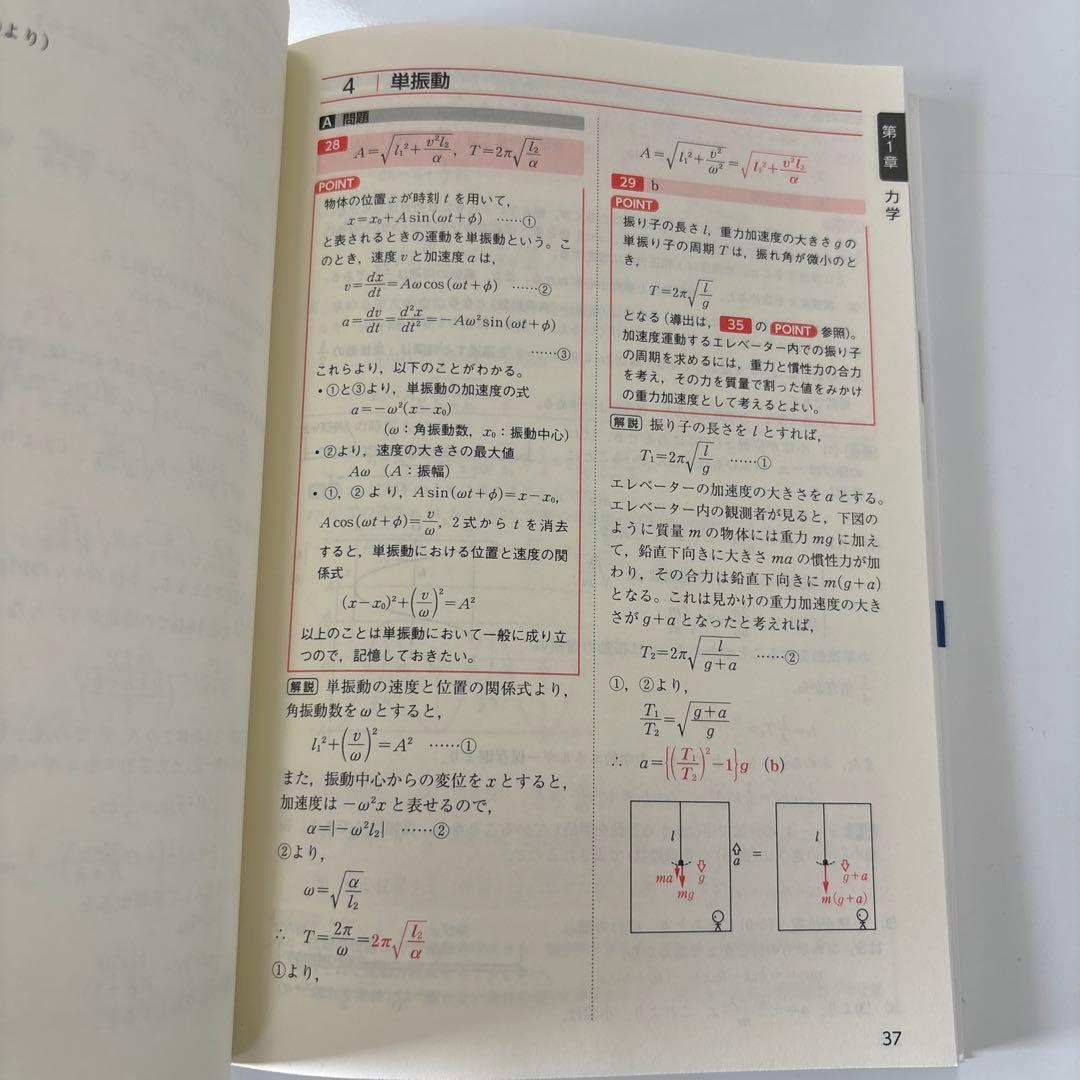 より)
4 単振動
A 問題
28 A=√(l₁²+v²l₂/α), T=2π√(l₂/α)
POINT
物体の位置xが時刻tを用いて,
x=x₀+Asin(ωt+φ) ……①
と表されるときの運動を単振動という。こ
のとき,速度vと加速度aは,
v=dx/dt=Aωcos(ωt+φ) ……②
a=dv/dt=d²x/dt²=-Aω²sin(ωt+φ)
……③
これらより,以下のことがわかる。
・①と③より,単振動の加速度の式
a=-ω²(x-x₀)
(ω:角振動数, x₀:振動中心)
・②より,速度の大きさの最大値
Aω (A:振幅)
・①,②より,Asin(ωt+φ)=x-x₀,
Acos(ωt+φ)=v/ω, 2式からtを消去
すると,単振動における位置と速度の関
係式
(x-x₀)²+(v/ω)²=A²
以上のことは単振動において一般に成り立
つので,記憶しておきたい。
解説 単振動の速度と位置の関係式より,
角振動数をωとすると,
l₁²+(v/ω)²=A² ……①
また,振動中心からの変位をxとすると,
加速度は-ω²xと表せるので,
α=|-ω²l₂| ……②
②より,
ω=√(α/l₂)
∴ T=2π/ω=2π√(l₂/α)
①より,
A=√(l₁²+v²/ω²)=√(l₁²+v²l₂/α)
29 b
POINT
振り子の長さl,重力加速度の大きさgの
単振り子の周期Tは,振れ角が微小のと
き,
T=2π√(l/g)
となる(導出は, 35 の POINT 参照)。
加速度運動するエレベーター内での振り子
の周期を求めるには,重力と慣性力の合力
を考え,その力を質量で割った値をみかけ
の重力加速度として考えるとよい。
解説 振り子の長さをlとすれば,
T₁=2π√(l/g) ……①
エレベーターの加速度の大きさをaとする。
エレベーター内の観測者が見ると,下図の
ように質量mの物体には重力mgに加え
て,鉛直下向きに大きさmaの慣性力が加
わり,その合力は鉛直下向きにm(g+a)
となる。これは見かけの重力加速度の大き
さがg+aとなったと考えれば,
T₂=2π√(l/(g+a)) ……②
①,②より,
T₁/T₂=√((g+a)/g)
∴ a={(T₁/T₂)²-1}g (b)
l
ma
mg
g
a
=
l
g+a
m(g+a)
第1章
力学
37